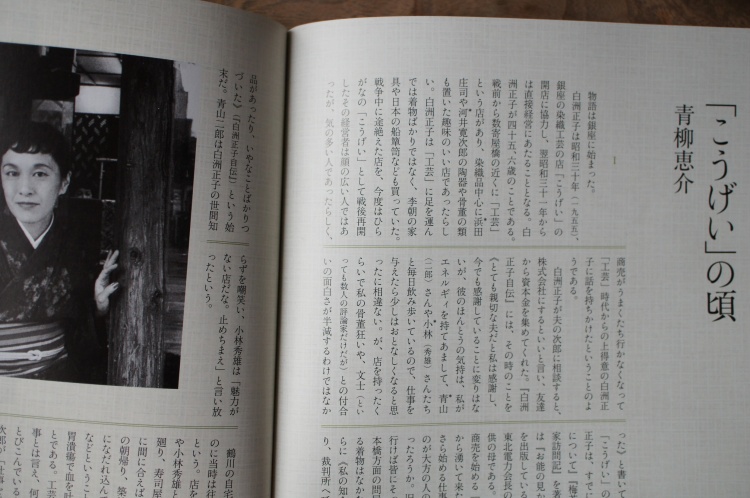 「こうげい」の頃
青柳恵介
1
物語は銀座に始まった。
白洲正子は昭和三十年（一九五五）、
銀座の染織工芸の店「こうげい」の
開店に協力し、翌昭和三十一年から
は直接経営にあたることとなる。白
洲正子が四十五、六歳のことである。
戦前から数寄屋橋の近くに「工芸」
という店があり、染織品中心に浜田
庄司や河井寛次郎の陶器や骨董の類
も置いた趣味のいい店であったらし
い。白洲正子は「工芸」に足を運ん
では着物ばかりではなく、李朝の家
具や日本の船簞笥なども買っていた。
戦争中に途絶えた店を、今度はひら
がなの「こうげい」として戦後再開
したその経営者は顔の広い人ではあ
ったが、気の多い人であったらしく、
商売がうまくたち行かなくなって
「工芸」時代からの上得意の白洲正
子に話を持ちかけたということのよ
うである。
白洲正子が夫の次郎に相談すると、
株式会社にするといいと言い、友達
から資本金を集めてくれた。『白洲
正子自伝』には、その時のことを
《とても親切な夫だと私は感謝し、
今でも感謝していることに変りはな
いが、彼のほんとうの気持は、私が
エネルギィを持てあまして、青山
（二郎）さんや小林（秀雄）さんたち
と毎日飲み歩いているので、仕事を
与えたら少しはおとなしくなると思
ったに相違ない。が、店を持ったく
らいで私の骨董狂いや、文士（とい
っても数人の評論家だけだが）との付合
いの面白さが半減するわけではなか
った》と書い
「こうげい」の
正子は、すで
について『梅
家訪問記』を著
は『お能の見か
を出版している
東北電力会長の
供の母である。
商売を始める
から湧いて来た
さら始める仕事
のが大方の人の
ったろうか。旧
行けば皆にそ
本橋方面の問
る着物はなか
らに《私の知
り、裁判所へ
品があったり、いやなことばかりつ
づいた》（『白洲正子自伝』）という始
末だ。青山二郎は白洲正子の世間知
らずを嘲笑い、小林秀雄は「魅力が
ない店だな。止めちまえ」と言い放
ったという。
鶴川の自宅
のに当時は往
という。店を
や小林秀雄と
廻り、寿司屋
に間に合えば
の朝帰り、築
になだれ込ん
などということ
胃潰瘍で血を吐
とである。工芸
事とは言え、何
とびこんでいる
次郎が「仕事